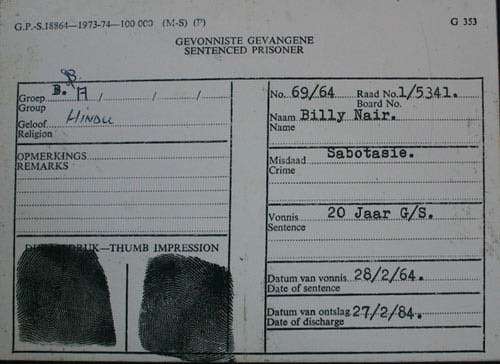 G.P.-S.18864—1973-74—100 000 (M-S) (F)
G 353
GEVONNISTE GEVANGENE
SENTENCED PRISONER
B
Groep B. A / / /
Group
Geloof HINDU
Religion
OPMERKINGS
REMARKS
DRUK—THUMB IMPRESSION
No. 69/64 Raad No. 1/5341.
Board No.
Naam Billy Nair.
Name
Misdaad Sabotasie.
Crime
Vonnis 20 Jaar G/S.
Sentence
Datum van vonnis 28/2/64.
Date of sentence
Datum van ontslag 27/2/84.
Date of discharge